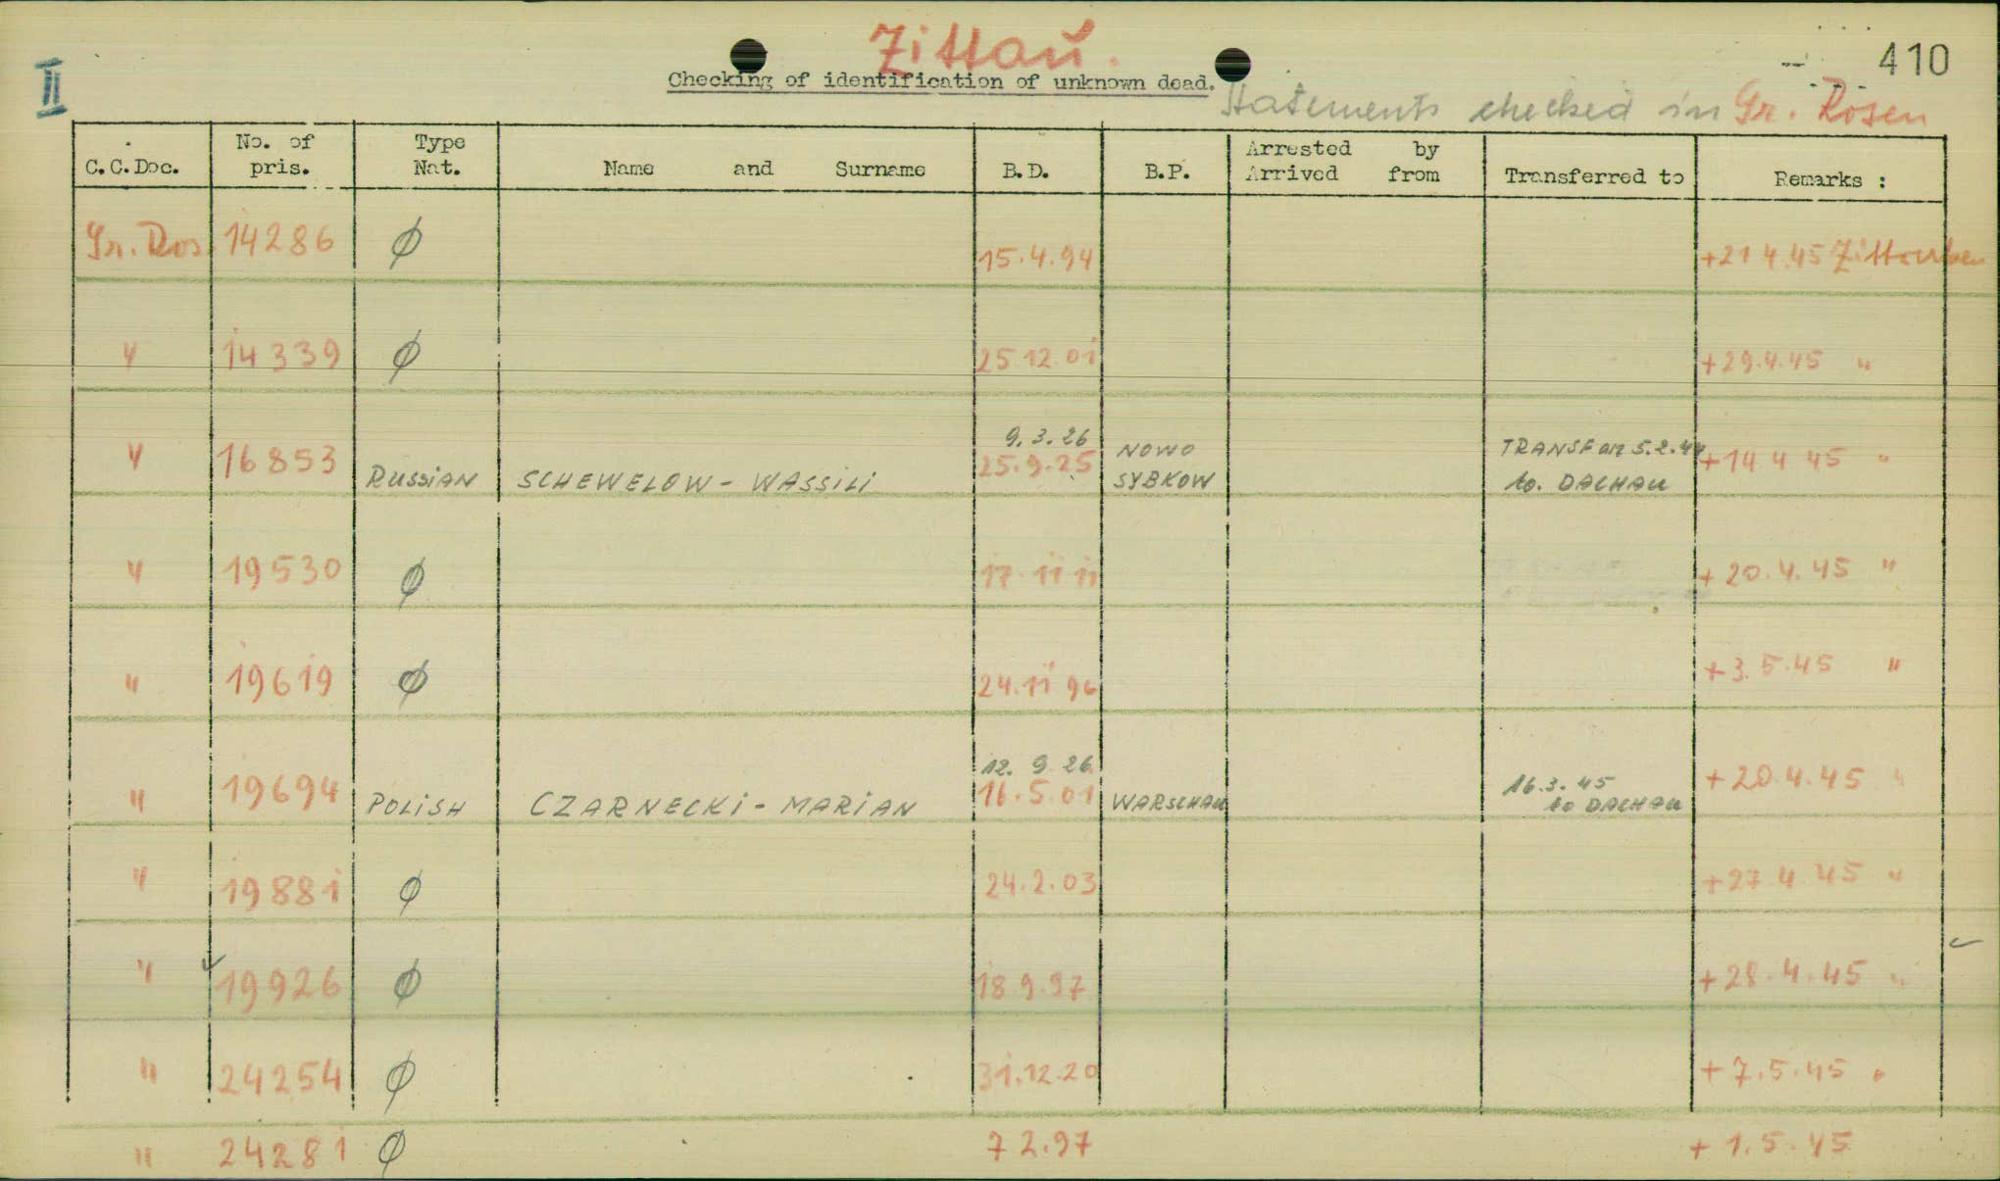 Zittau.
410
II
Checking of identification of unknown dead.
Statements checked in Gr. Rosen
C.C.Doc. No. of pris. Type Nat. Name and Surname B.D. B.P. Arrested by Arrived from Transferred to Remarks :
Gr. Ros. 14286 ø 15.4.94 +21 4.45
" 14339 ø 25.12.01 +29.4.45 "
9.3.26 NOWO TRANSF am 5.2.44
" 16853 RUSSIAN SCHEWELOW - WASSILI 25.9.25 SYBKOW to. DACHAU +14 4 45 "
" 19530 ø 17.11 11 + 20.4.45 "
" 19619 ø 24.11 96 +3.5.45 "
12. 9 26 16.3.45
" 19694 POLISH CZARNECKI - MARIAN 16.5.01 WARSCHAU to DACHAU +20.4.45 "
" 19881 ø 24.2.03 +27 4 45 "
" 19926 ø 18 9.97 +28.4.45 "
" 24254 ø 31.12.20 +7.5.45 "
" 24281 ø 7 2.97 + 1.5.45